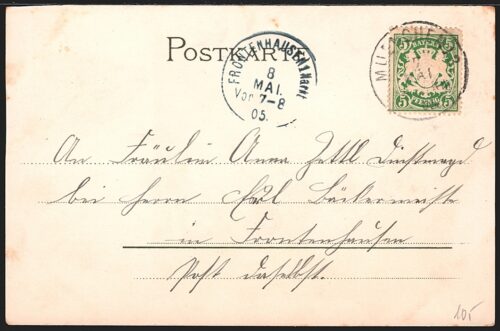 POSTKARTE
FRONTENHAUSEN Markt
8
MAI.
Vor 7-8
05.
MUENCHEN
MAI
BAYERN
5 5
5 PFENNIG 5
An Fräulein Anna Zettl Dienstmagd
bei Herrn Bäckermeister
in Frontenhausen
Post daselbst.
105